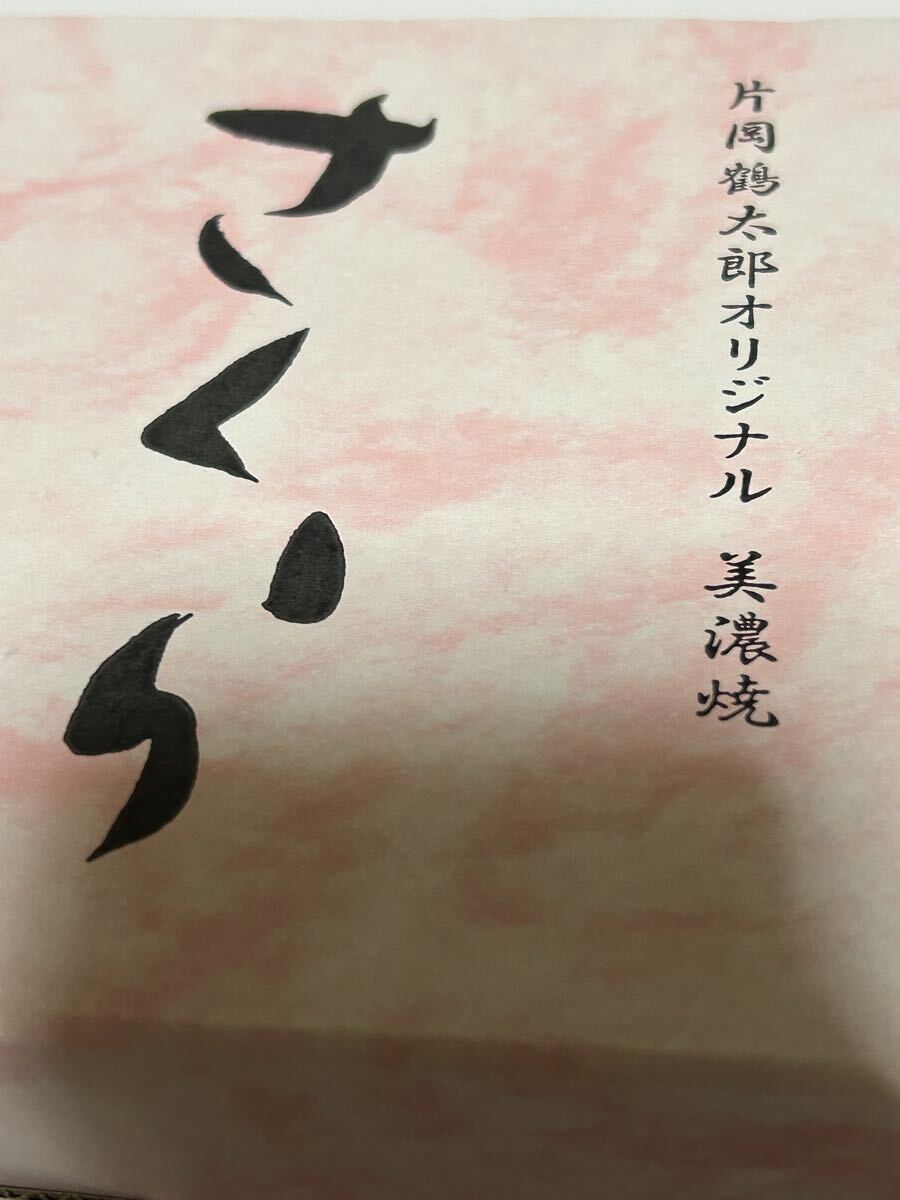 片岡鶴太郎オリジナル 美濃焼
さくら